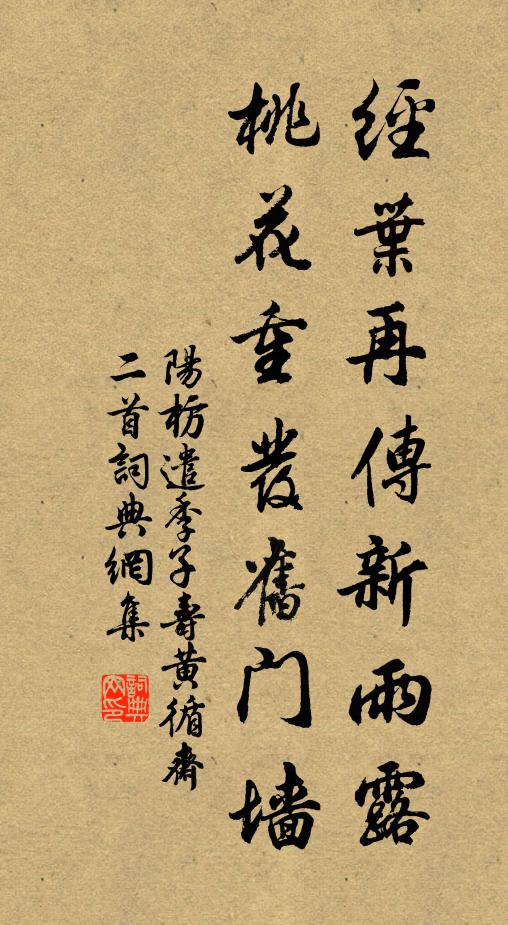 經葉再傳新雨露
桃花重發舊門墻
陽枋遣季子壽黃循齋
二首詞典網集
詞典網印